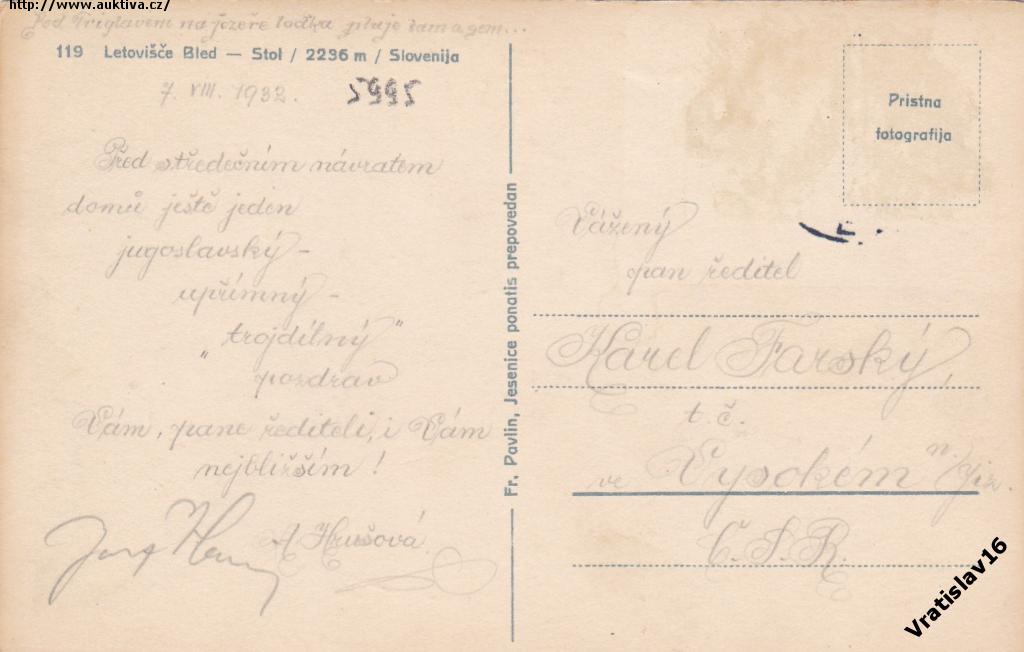 http://www.auktiva.cz/
Pod Triglavem na jezeře loďka pluje tam a sem...
119 Letovišče Bled — Stol / 2236 m / Slovenija
7. VIII. 1932.
5995
Před středečním návratem
domů ještě jeden
jugoslavský -
upřímný -
„trojdílný"
pozdrav
Vám, pane řediteli, i Vám
nejbližším!
Josef
A Hrušová.
Fr. Pavlin, Jesenice ponatis prepovedan
Pristna
fotografija
Vážený
pan ředitel
Karel Farský,
t. č.
ve Vysokém n./Jiz.
Č. S. R.
Vratislav16